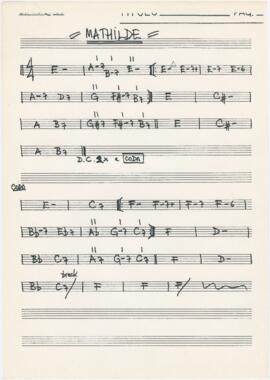 TITULO PAG.
= MATHILDE =
4 E- | A-7 B-7 E- | E-△ E-7+ | E-7 E-6
A-7 D7 | G F#-7 B7 | E | C#-
A B7 | G#7 F#-7 B7 | E | C#-
A B7
D.C. 2x e CODA
CODA
E- | C7 | F- F-7+ | F-7 F-6
Bb-7 Eb7 | Ab G-7 C7 | F | D-
Bb C7 | A7 G-7 C7 | F | D-
break
Bb C7/ | F | F | F/